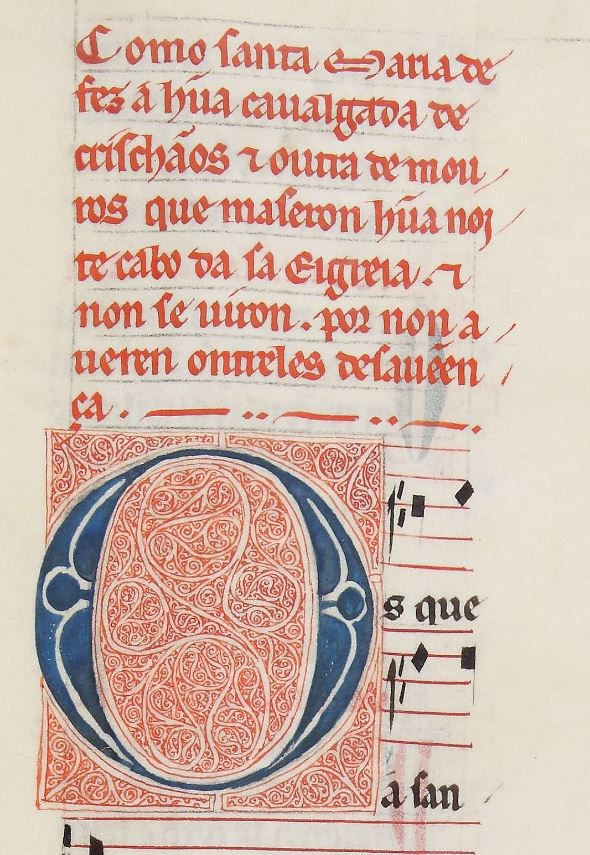 Como santa Maria de
fez a hũa caualgada de
crischãos ⁊ outra de mou
ros que maseron hũa noi
te cabo da sa Eigreia . ⁊
non se uiron . por non a
ueren ontreles desauẽen
ça .
Os que
a san